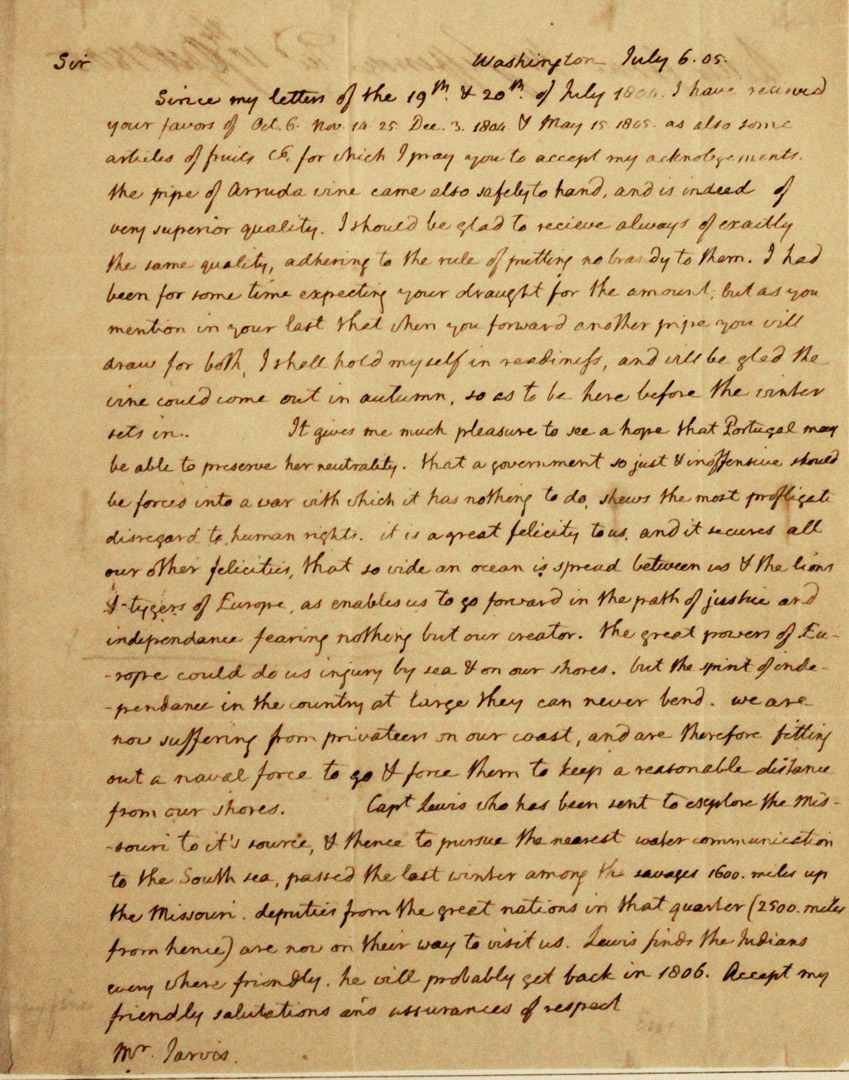 Sir Washington July 6. 05.
Since my letters of the 19th. & 20th. of July 1804. I have recieved
your favors of Oct. 6. Nov. 14. 25. Dec. 3. 1804. & May 15. 1805. as also some
articles of fruits &c. for which I pray you to accept my acknolegements.
the pipe of Arruda wine came also safely to hand, and is indeed of
very superior quality. I should be glad to recieve always of exactly
the same quality, adhering to the rule of putting no brandy to them. I had
been for some time expecting your draught for the amount; but as you
mention in your last that when you forward another pipe you will
draw for both, I shall hold myself in readiness, and will be glad the
wine could come out in autumn, so as to be here before the winter
sets in. It gives me much pleasure to see a hope that Portugal may
be able to preserve her neutrality. that a government so just & inoffensive should
be forced into a war with which it has nothing to do, shews the most profligate
disregard to human rights. it is a great felicity to us, and it secures all
our other felicities, that so wide an ocean is spread between us & the lions
& tygers of Europe, as enables us to go forward in the path of justice and
independance fearing nothing but our creator. the great powers of Eu-
-rope could do us injury by sea & on our shores. but the spirit of inde-
-pendance in the country at large they can never bend. we are
now suffering from privateers on our coast, and are therefore fitting
out a naval force to go & force them to keep a reasonable distance
from our shores. Capt Lewis who has been sent to explore the Mis-
-souri to it's source, & thence to pursue the nearest water communication
to the South sea, passed the last winter among the savages 1600. miles up
the Missouri. deputies from the great nations in that quarter (2500. miles
from hence) are now on their way to visit us. Lewis finds the Indians
every where friendly. he will probably get back in 1806. Accept my
friendly salutations and assurances of respect
Mr. Jarvis.